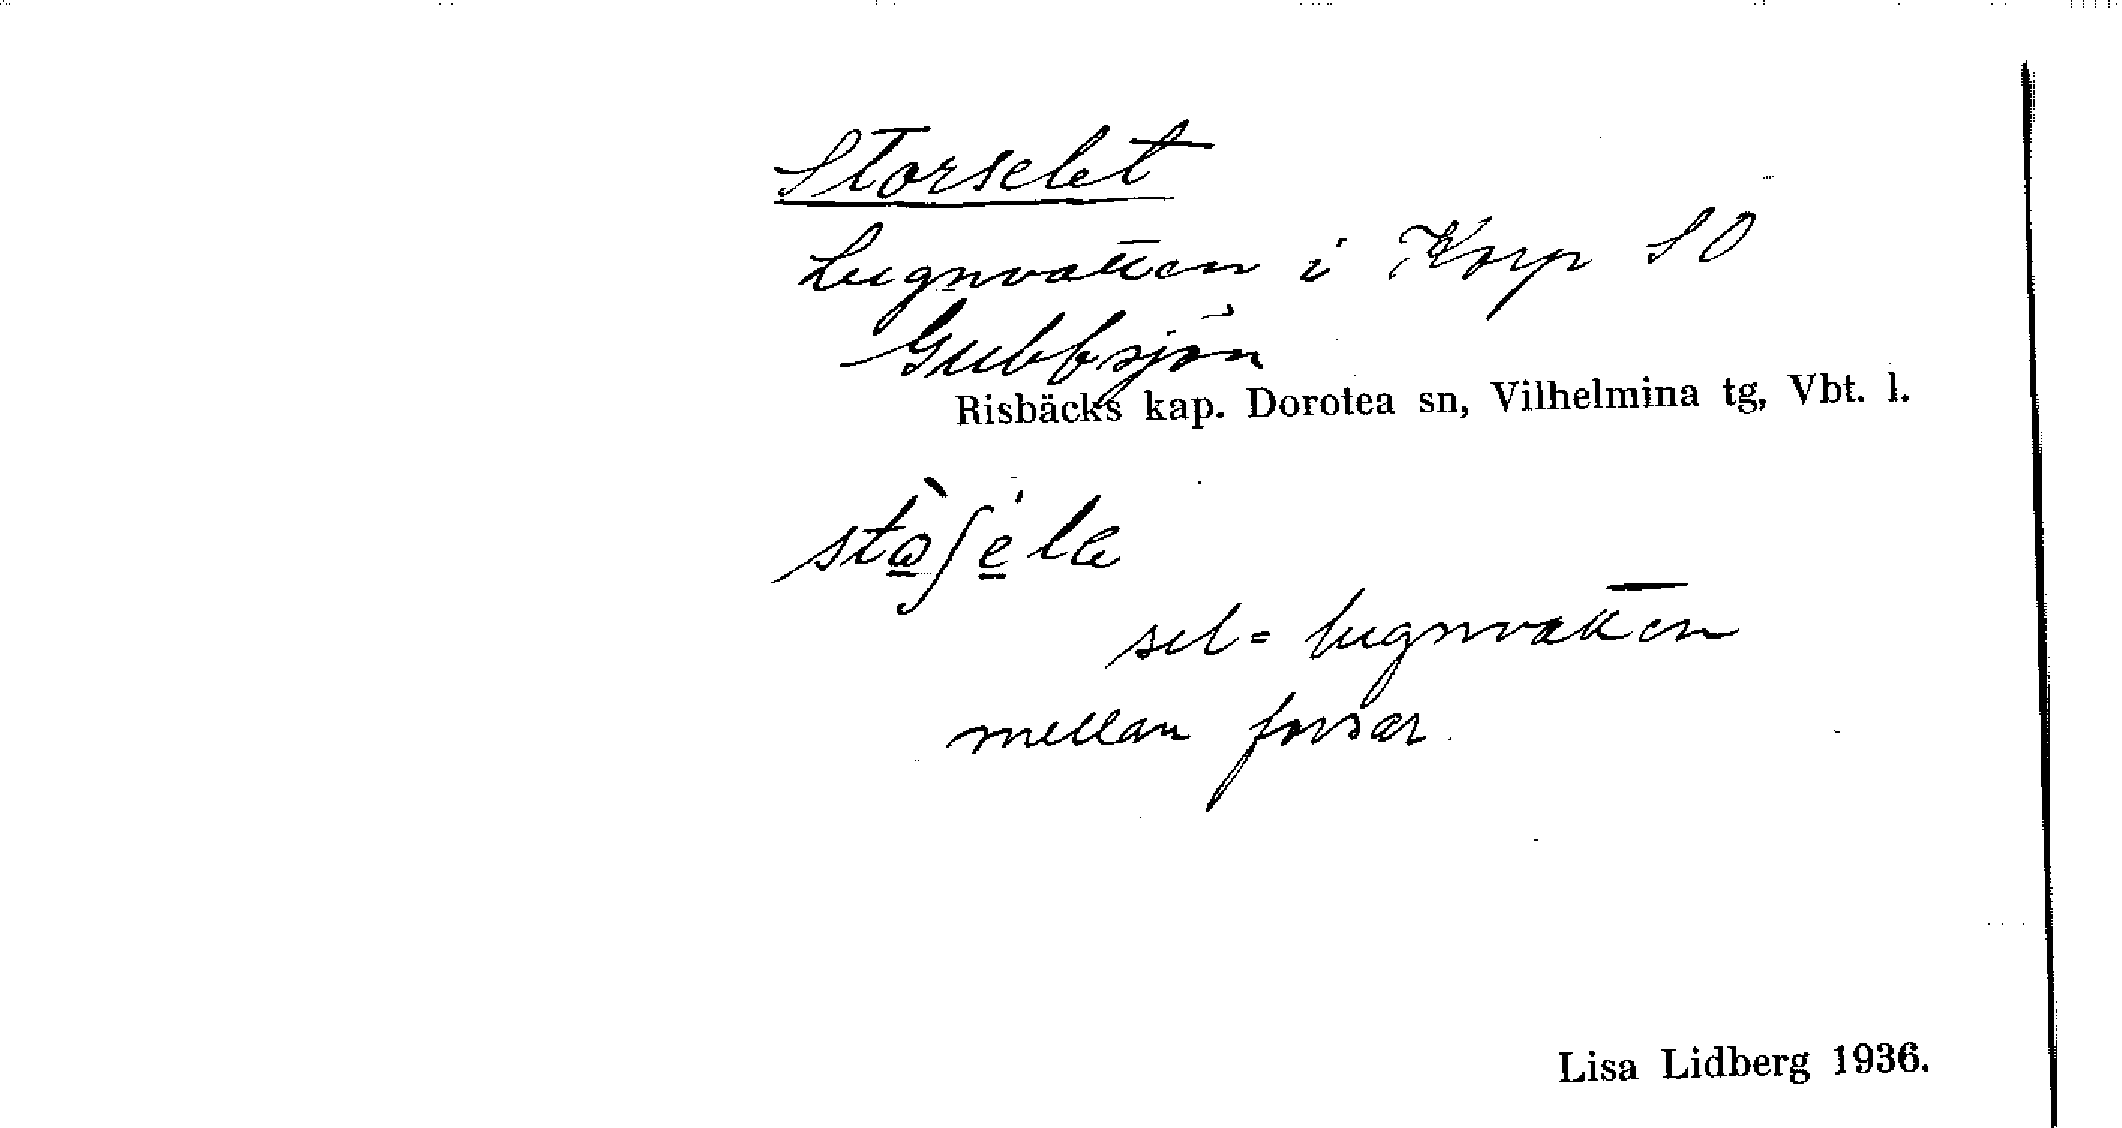 Storselet
Lugnvatten i Korp SO
Gubbsjön
Risbäcks kap. Dorotea sn, Vilhelmina tg, Vbt. l.
sel = lugnvatten
mellan forsar.
Lisa Lidberg 1936.